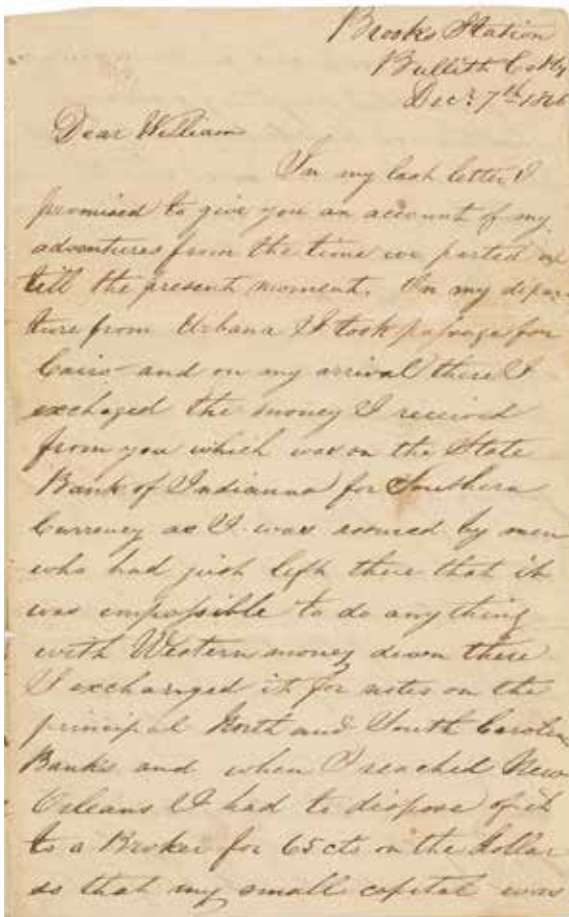 Brooks Station
Bullith Co Ky
Decr. 7th 186
Dear William
In my last letter I
promised to give you an account of my
adventures from the time we parted up
till the present moment. On my depar-
ture from Urbana I took passage for
Cairo and on my arrival there I
exchaged the money I received
from you which was on the State
Bank of Indianna for Southern
Currency as I was assured by men
who had just left there that it
was impossible to do anything
with Western money down there
I exchanged it for notes on the
principal North and South Carolina
Banks and when I reached New
Orleans I had to dispose of it
to a Broker for 65 cts on the dollar
so that my small capital was